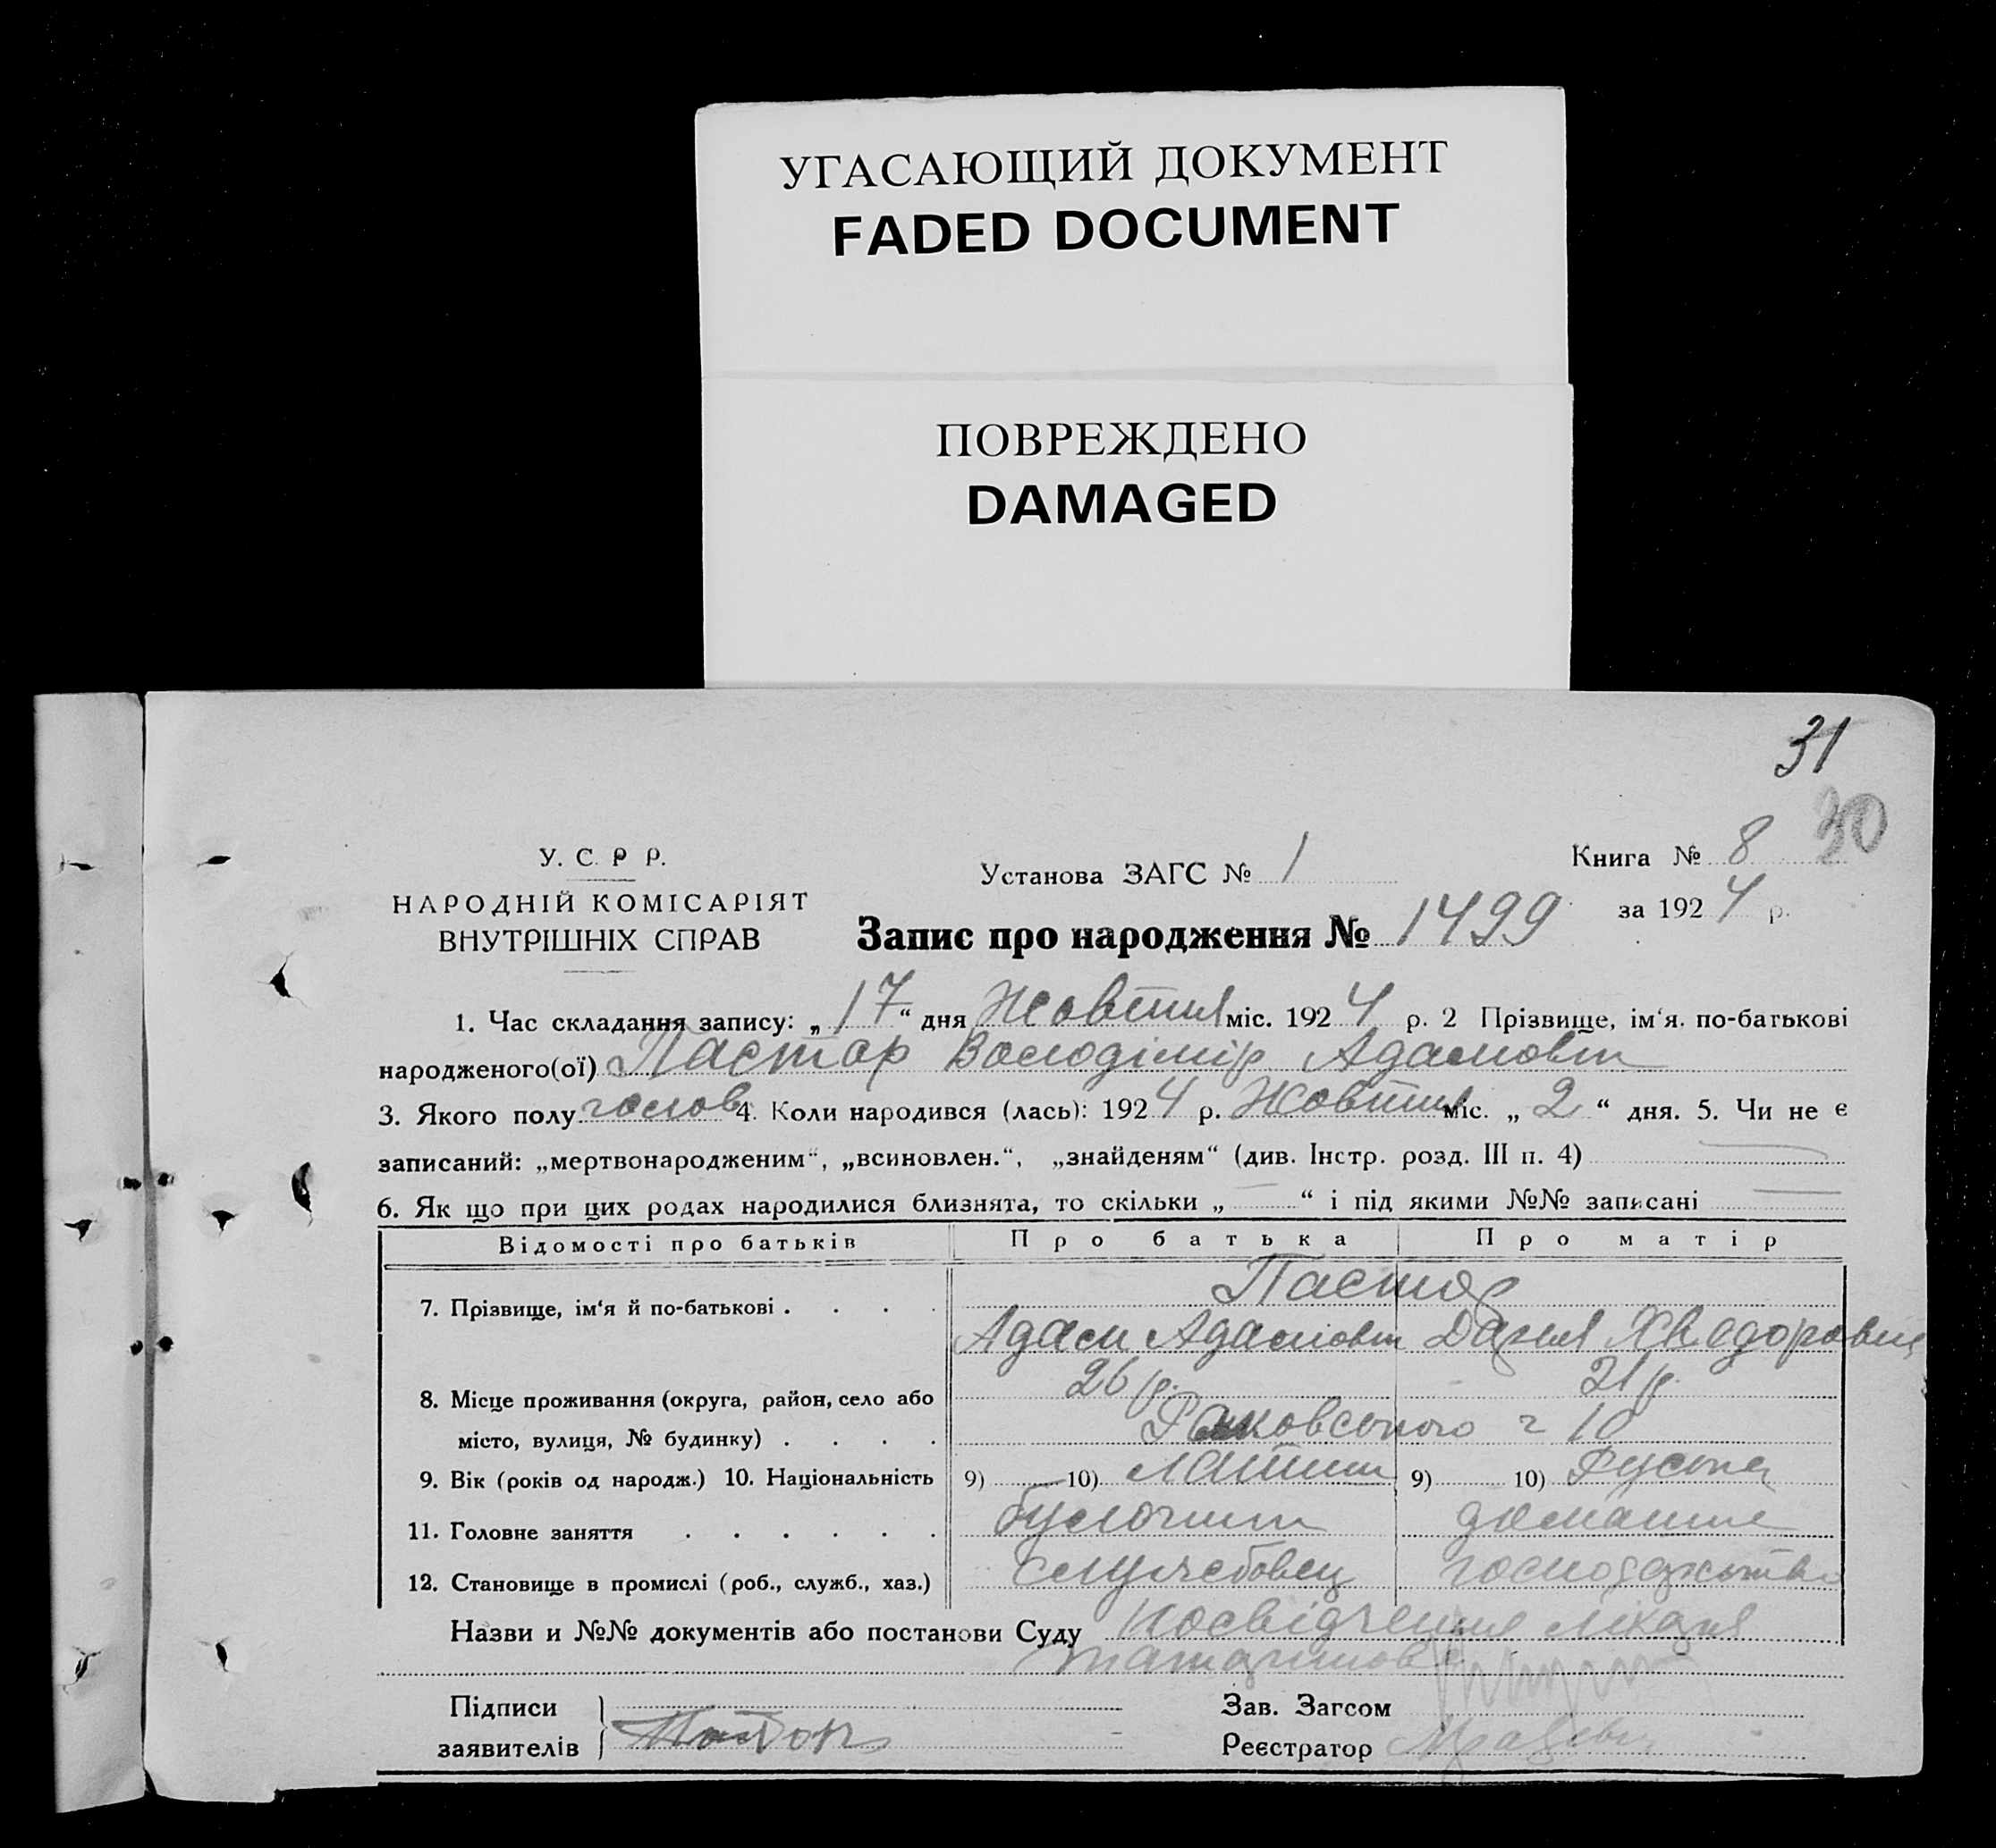 УГАСАЮЩИЙ ДОКУМЕНТ
FADED DOCUMENT
ПОВРЕЖДЕНО
DAMAGED
31
30
У. С. Р Р.
НАРОДНІЙ КОМІСАРІЯТ
ВНУТРІШНІХ СПРАВ
Установа ЗАГС № 1
Книга № 8
за 1924 р.
Запис про народження № 1499
1. Час складання запису: „17“ дня Жовтня міс. 1924 р. 2 Прізвище, ім‘я. по-батькові
народженого(ої) Пастор Володімір Адамович
3. Якого полу голов. 4. Коли народився (лась): 1924 р. Жовтня міс. „2“ дня. 5. Чи не є
записаний: „мертвонародженим“, „всиновлен.“, „знайденям“ (див. Інстр. розд. III п. 4)
6. Як що при цих родах народилися близнята, то скільки „ — “ і під якими №№ записані —
Відомості про батьків Про батька Про матір
7. Прізвище, ім‘я й по-батькові . . . . Пастор
Адам Адамович Дарья Хведоровна
26 р. 21 р.
8. Місце проживання (округа, район, село або
місто, вулиця, № будинку) . . . . Раковського 10
9. Вік (років од народж.) 10. Національність 9) 10) Латиш 9) 10) Руська
11. Головне заняття . . . . . . булочник домашнє
12. Становище в промислі (роб., служб., хаз.) службовец господарство
Назви и №№ документів або постанови Суду посвідчення лікаря
Підписи
заявителів
Зав. Загсом
Реєстратор